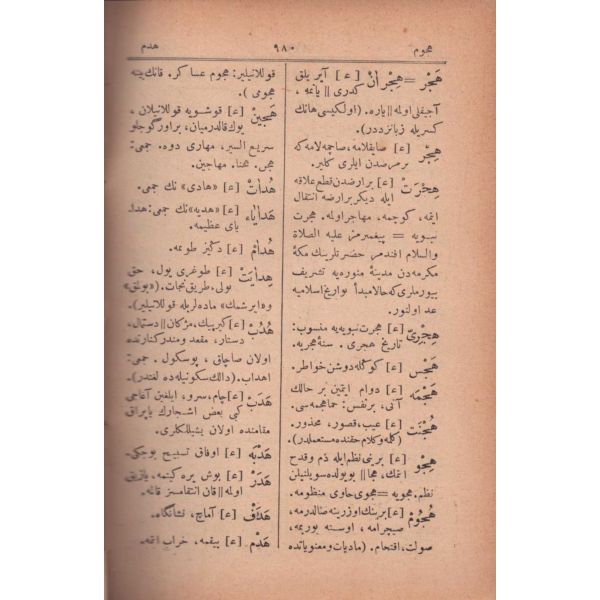 هجوم
٩٨٠
هدم
هَجْر = هِجْرَانْ [ع] آیریلق
كدری || یاتمه ،
آجیقلی اولمه || یاره. (اولكیسی هانك
كسریله زبانزددر).
هِجْر [ع] صایقلامه، صاچمه لامه كه
برمرضدن ایلری كلیر.
هِجْرَتْ [ع] بر ارضدن قطع علاقه
ایله دیكر بر ارضه انتقال
ایتمه، كوچمه، مهاجر اولمه. هجرت
نبویه = پیغمبرمز علیه الصلاة
والسلام افندمز حضرتلرینك مكهٔ
مكرمه‌دن مدینهٔ منوره‌یه تشریف
بیورملری كه حالا مبدأ تواریخ اسلامیه
عد اولنور.
هِجْرِیْ [ع] هجرت نبویه‌یه منسوب:
تاریخ هجری . سنهٔ هجریه.
هَجْسْ [ع] كوكله دوشن خواطر.
هَجْمَه [ع] دوام ایتمین بر حالك
آنی، بر نفس: حما هجمه‌سی.
هُجْنَتْ [ع] عیب، قصور، محذور.
(كله و كلام حقنده مستعملدر).
هِجْوْ [ع] برینی نظم ایله ذم و قدح
ایتمك، هجا || بویولده سویلنیلن
نظم. هجویه = هجوی حاوی منظومه.
هُجُومْ [ع] برینك اوزرینه صالدرمه،
صیچرامه ، اوسنه یوریمه،
صولت، اقتحام. (مادیات و معنویاتده
قوللانیلیر: هجوم عساكر. قانك بینه
هجومی ).
هَجِینْ [ع] قوشویه قوللانیلان ،
یوك قالدرمیان،
سریع السیر، مهاری دوه. جمعی:
هجن. هجنا. مهاجین.
هُدَاتْ [ع] «هادی» نك جمعی.
هَدَایَاء [ع] «هدیه» نك جمعی: هدا-
یای عظیمه.
هُدَامْ [ع] دكیز طوتمه.
هِدَایَتْ [ع] طوغری یول، حق
یولی، طریق نجات. («بولمق»
و «ایرشمك» ماده‌لریله قوللانیلیر).
هُدُبْ [ع] كیرپیك، مژكان || دستمال،
دستار، مقعد و مندر كنارنده
اولان صاچاق ، پوسكول . جمعی:
اهداب. (دالك سكونیله ده لغتدر).
هَدَبْ [ع] چام، سرو، ایلغین آغاجی
كبی بعض اشجارك یاپراق
مقامنده اولان یشیللكلری.
هَدْبَه [ع] اوفاق تسبیح بوجكی.
هَدَرْ [ع] بوش یره كیتمه، یازیق
اولمه || قان انتقامسز قالمه.
هَدَفْ [ع] آماج، نشانكاه.
هَدْمْ [ع] ییقمه، خراب ایتمه.